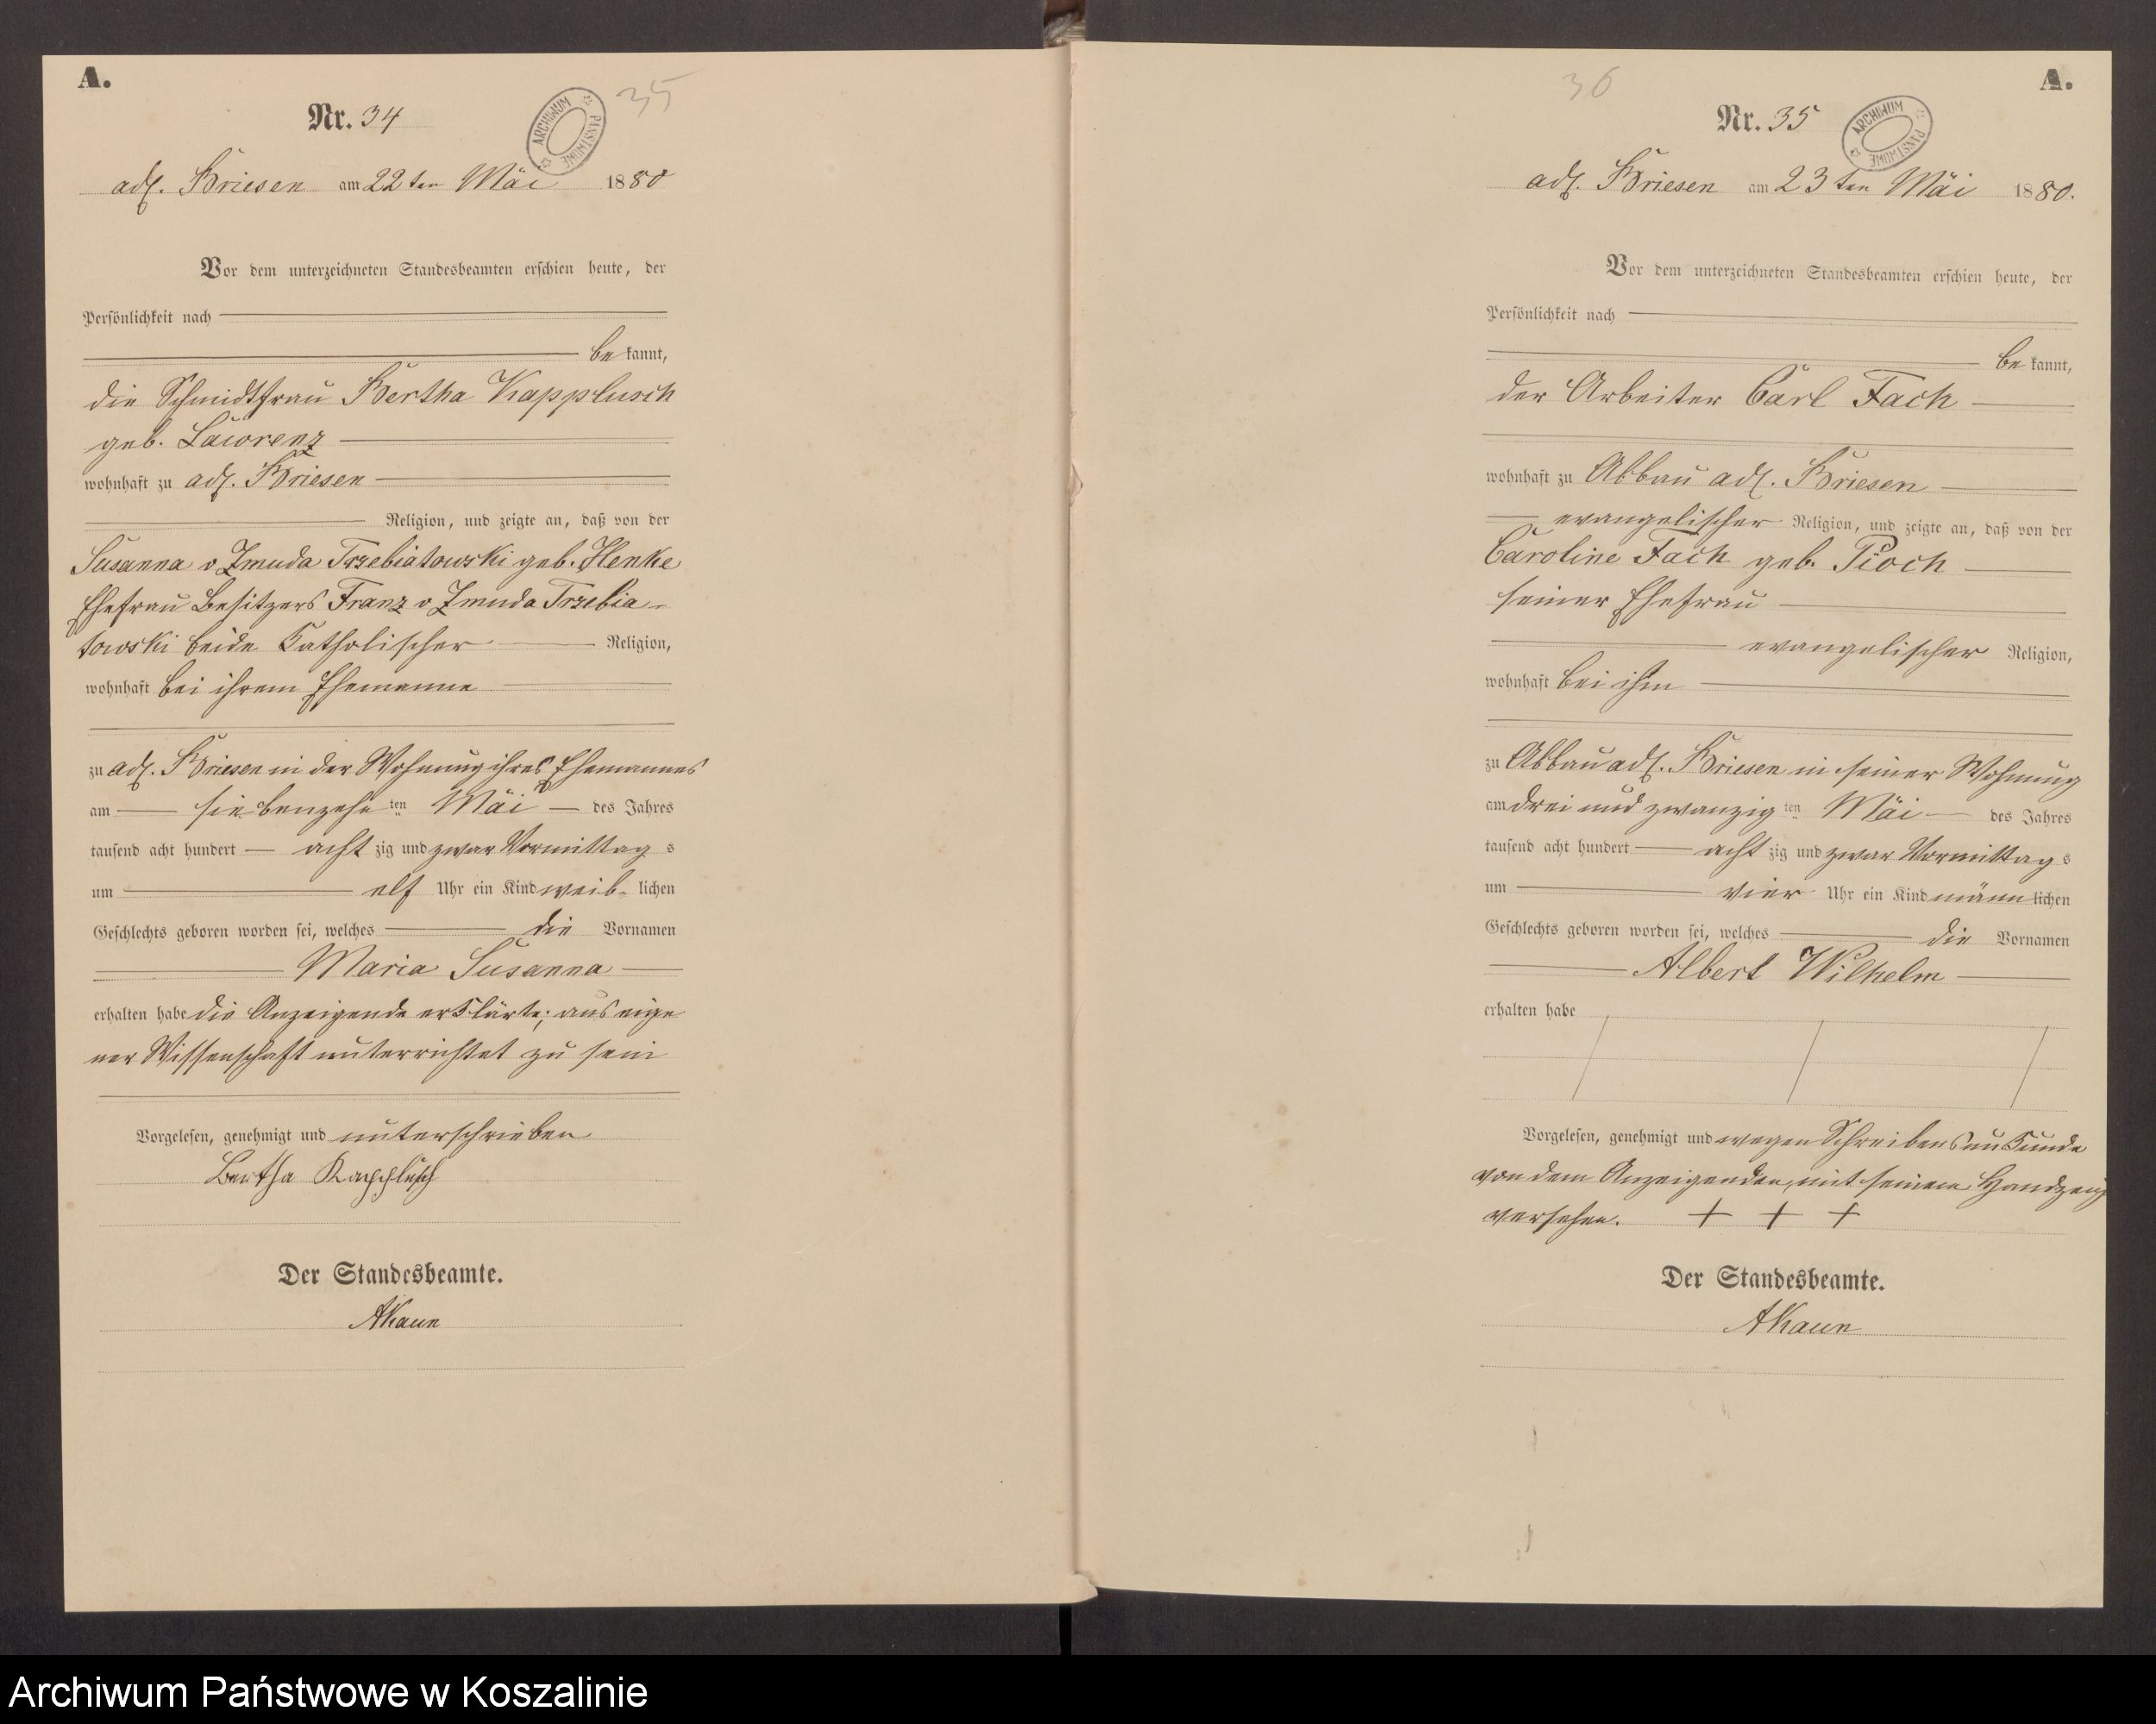 A.
Nr. 34
35
ARCHIWUM PAŃSTWOWE
adl. Briesen am 22ten Mai 1880
Vor dem unterzeichneten Standesbeamten erschien heute, der
Persönlichkeit nach
be kannt,
die Schmidtfrau Bertha Kapplusch
geb. Lawrenz
wohnhaft zu adl. Briesen
Religion, und zeigte an, daß von der
Susanna v Zmuda Trzebiatowski geb. Henke
Ehefrau Besitzers Franz v Zmuda Trzebia-
towski beide Katholischer Religion,
wohnhaft bei ihrem Ehemanne
zu adl. Briesen in der Wohnung ihres Ehemannes
am siebenzehn ten Mai des Jahres
tausend acht hundert acht zig und zwar Vormittag s
um elf Uhr ein Kind weib- lichen
Geschlechts geboren worden sei, welches die Vornamen
Maria Susanna
erhalten habe die Anzeigende erklärte; aus eige
ner Wissenschaft unterrichtet zu sein
Vorgelesen, genehmigt und unterschrieben
Bertha Kapplusch
Der Standesbeamte.
AKaun
36
A.
Nr. 35
ARCHIWUM PAŃSTWOWE
adl. Briesen am 23ten Mai 1880.
Vor dem unterzeichneten Standesbeamten erschien heute, der
Persönlichkeit nach
be kannt,
der Arbeiter Carl Fach
wohnhaft zu Abbau adl. Briesen
evangelischer Religion, und zeigte an, daß von der
Caroline Fach geb. Pioch
seiner Ehefrau
evangelischer Religion,
wohnhaft bei ihm
zu Abbau adl. Briesen in seiner Wohnung
am drei und zwanzig ten Mai des Jahres
tausend acht hundert acht zig und zwar Vormittag s
um vier Uhr ein Kind männ lichen
Geschlechts geboren worden sei, welches die Vornamen
Albert Wilhelm
erhalten habe
Vorgelesen, genehmigt und wegen Schreibensunkunde
von dem Anzeigenden, mit seinem Handzeig
versehen. + + +
Der Standesbeamte.
AKaun
Archiwum Państwowe w Koszalinie